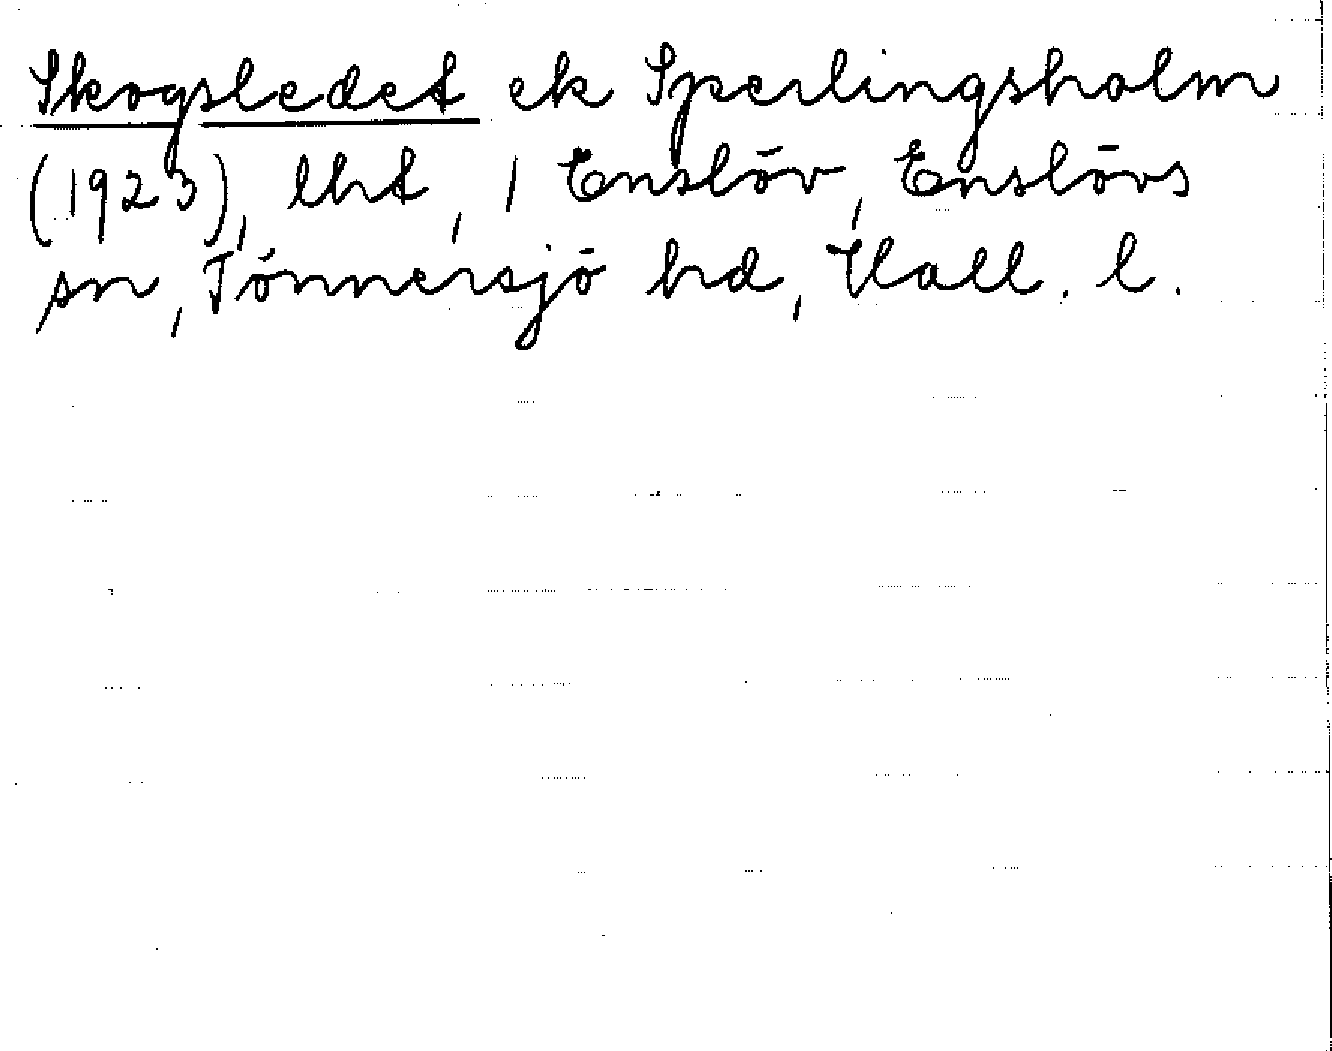 Skogsledet ek Sperlingsholm
(1923), lht, 1 Enslöv, Enslövs
sn, Tönnersjö hd, Hall. l.